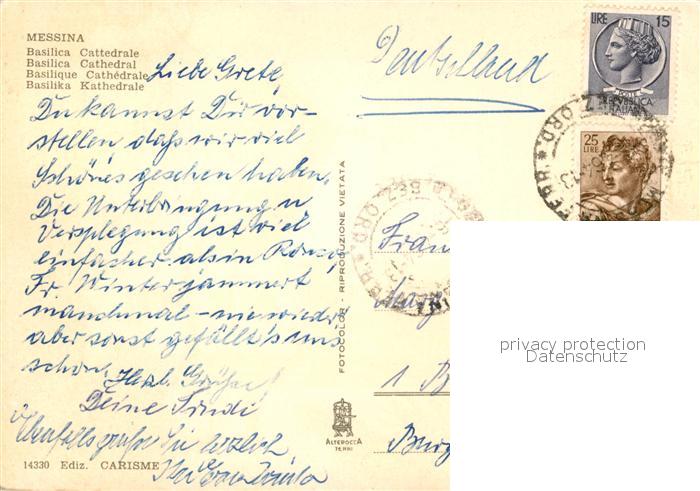 MESSINA
Basilica Cattedrale
Basilica Cathedral
Basilique Cathédrale
Basilika Kathedrale
Liebe Grete,
Du kannst Dir vor-
stellen daß wir viel
Schönes gesehen haben.
Die Unterbringung u
Verpflegung ist viel
einfacher als in Rom,
Fr. Winter jammert
manchmal - nie wieder
aber sonst gefällt's uns
schön. Herzl. Grüße
Deine
Ebenfalls grüßt Sie herzlich
Ihre
14330 Ediz. CARISME
FOTOCOLOR - RIPRODUZIONE VIETATA
ALTEROCCA
TERNI
Deutschland
LIRE 15
POSTE
REPVBBLICA
ITALIANA
25
LIRE
Frau
1 B
privacy protection
Datenschutz